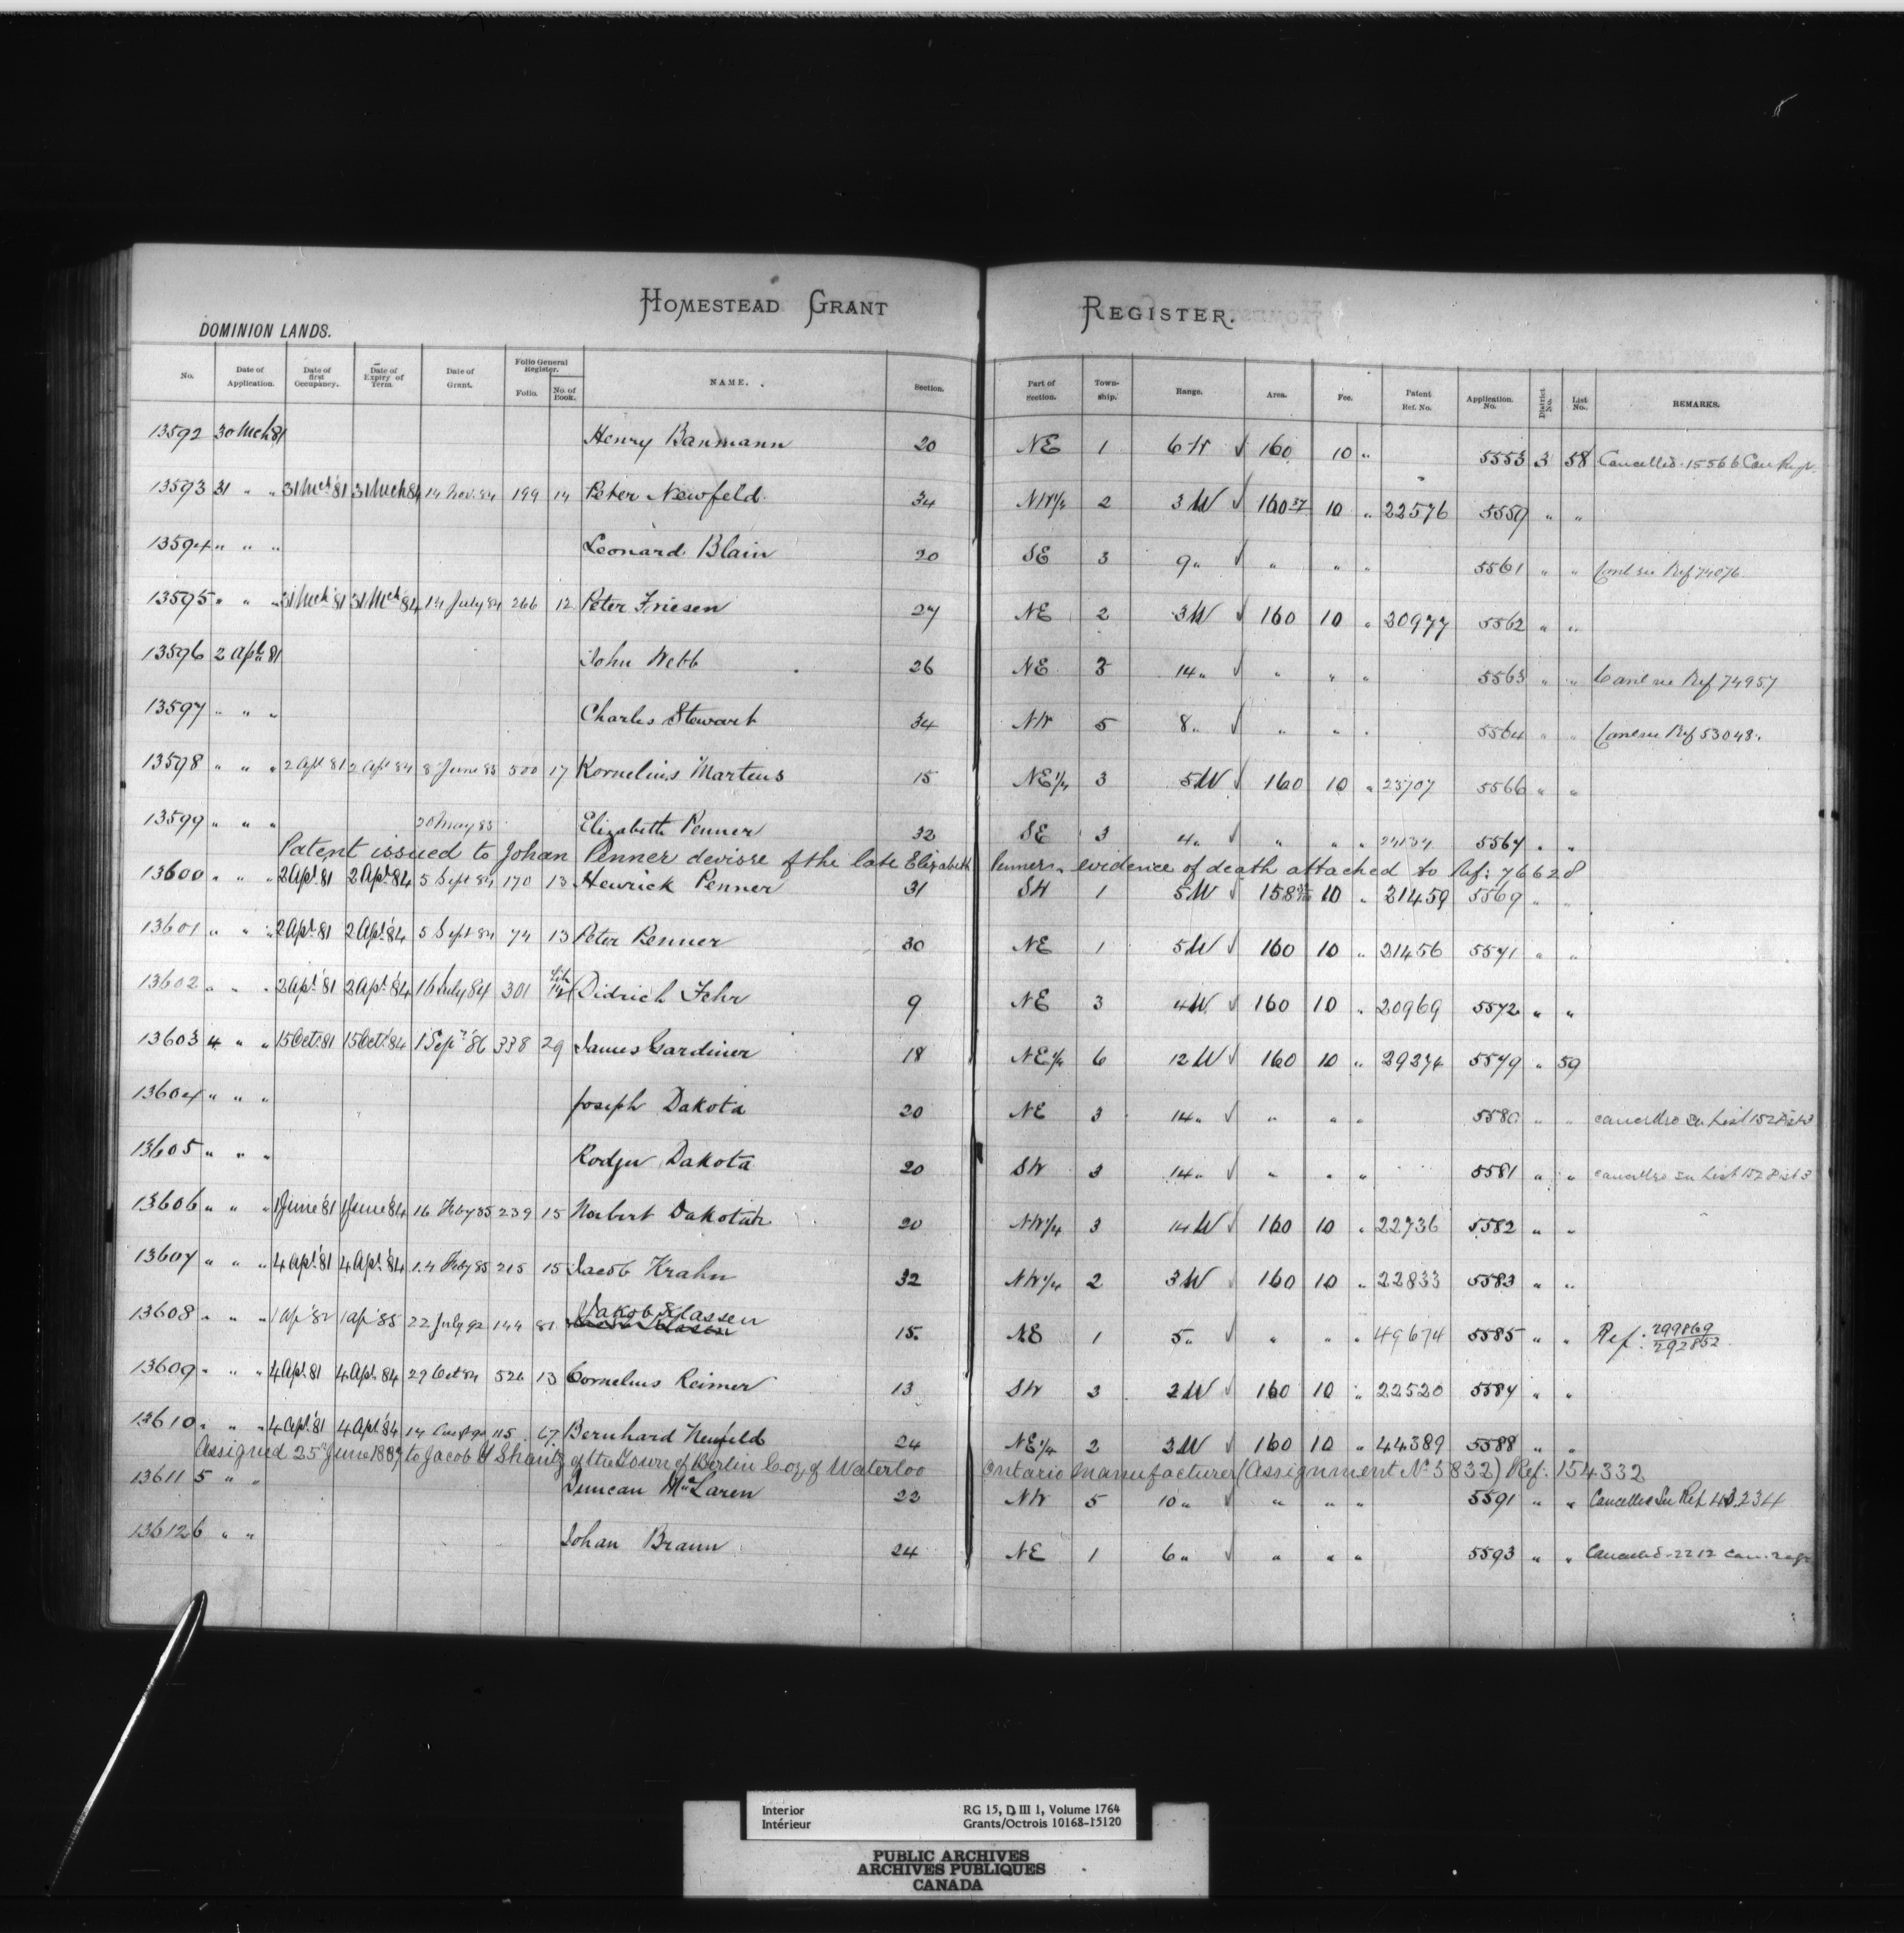 HOMESTEAD GRANT REGISTER.
DOMINION LANDS.
No. Date of Application. Date of first Occupancy. Date of Expiry of Term. Date of Grant. Folio General Register. Folio. No. of Book. NAME. Section. Part of Section. Town-ship. Range. Area. Fee. Patent Ref. No. Application No. District No. List No. REMARKS.
13592 30 Mch 81 Henry Banmann 20 NE 1 6 W √ 160 10 " 5553 3 58 Cancelled 15566 Can Regr.
13593 31 " " 31 Mch '81 31 Mch 84 14 Nov. 84 199 14 Peter Newfeld 34 NW 1/4 2 3 W √ 160 37 10 " 22576 5559 " "
13594 " " " Leonard Blain 20 SE 3 9 " √ " " " 5561 " " Canl see Ref 74076
13595 " " " 31 Mch '81 31 Mch 84 14 July 84 266 12 Peter Friesen 27 NE 2 3 W √ 160 10 " 20977 5562 " "
13596 2 Apl. 81 John Webb 26 NE 3 14 " √ " " " 5563 " " Canl see Ref 74957
13597 " " " Charles Stewart 34 NW 5 8 " √ " " " 5564 " " Canl see Ref 53048.
13598 " " " 2 Apl 81 2 Apl 84 8 June 85 500 17 Kornelius Martens 15 NE 1/4 3 5 W √ 160 10 " 23707 5566 " "
13599 " " " 20 May 85 Elizabeth Penner 32 SE 3 4 " √ " " " 5567 " "
Patent issued to Johan Penner devisee of the late Elizabeth Penner, evidence of death attached to Ref: 76628
13600 " " " 2 Apl. 81 2 Apl. 84 5 Sept 84 170 13 Henrick Penner 31 SW 1 5 W √ 158 10 " 21459 5569 " "
13601 " " " 2 Apl. 81 2 Apl. 84 5 Sept 84 74 13 Peter Penner 30 NE 1 5 W √ 160 10 " 21456 5571 " "
13602 " " " 2 Apl. '81 2 Apl. '84 16 July 84 301 Lib 12 Didrich Fehr 9 NE 3 4 W √ 160 10 " 20969 5572 " "
13603 4 " " 15 Oct. 81 15 Oct. '84 1 Sepr. '86 338 29 James Gardiner 18 NE 1/4 6 12 W √ 160 10 " 29274 5579 " 59
13604 " " " Joseph Dakota 20 NE 3 14 " √ " " " 5580 " " cancelled See List 152 Dist 3
13605 " " " Rodger Dakota 20 SW 3 14 " √ " " " 5581 " " cancelled See List 152 Dist 3
13606 " " " 1 June '81 1 June '84 16 Feby 85 239 15 Norbert Dakotah 20 NW 1/4 3 14 W √ 160 10 " 22736 5582 " "
13607 " " " 4 Apl. '81 4 Apl. '84 14 Feby 85 215 15 Jacob Krahn 32 NW 1/4 2 3 W √ 160 10 " 22833 5583 " "
13608 " " " 1 Ap '82 1 Ap '85 22 July 92 144 81 Jakob Klassen 15. NE 1 5 " " " " 49674 5585 " " Ref: 299869 292852
13609 " " " 4 Apl. 81 4 Apl. 84 29 Oct 84 526 13 Cornelius Reimer 13 SW 3 2 W √ 160 10 " 22520 5587 " "
13610 " " " 4 Apl. '81 4 Apl. '84 115 67 Bernhard Neufeld 24 NE 1/4 2 3 W √ 160 10 " 44389 5588 " "
Assigned 25th June 1887 to Jacob Y Shantz of the Town of Berlin Co'y of Waterloo Ontario Manufacturer (Assignment No 5832) Ref. 154332
13611 5 " " Duncan McLaren 22 NW 5 10 " √ " " " 5591 " " Cancelled See Ref. 43234
13612 6 " " Johan Braun 24 NE 1 6 " √ " " " 5593 " " Cancelled 2212 Can. Regr
Interior
Intérieur
RG 15, D III 1, Volume 1764
Grants/Octrois 10168-15120
PUBLIC ARCHIVES
ARCHIVES PUBLIQUES
CANADA